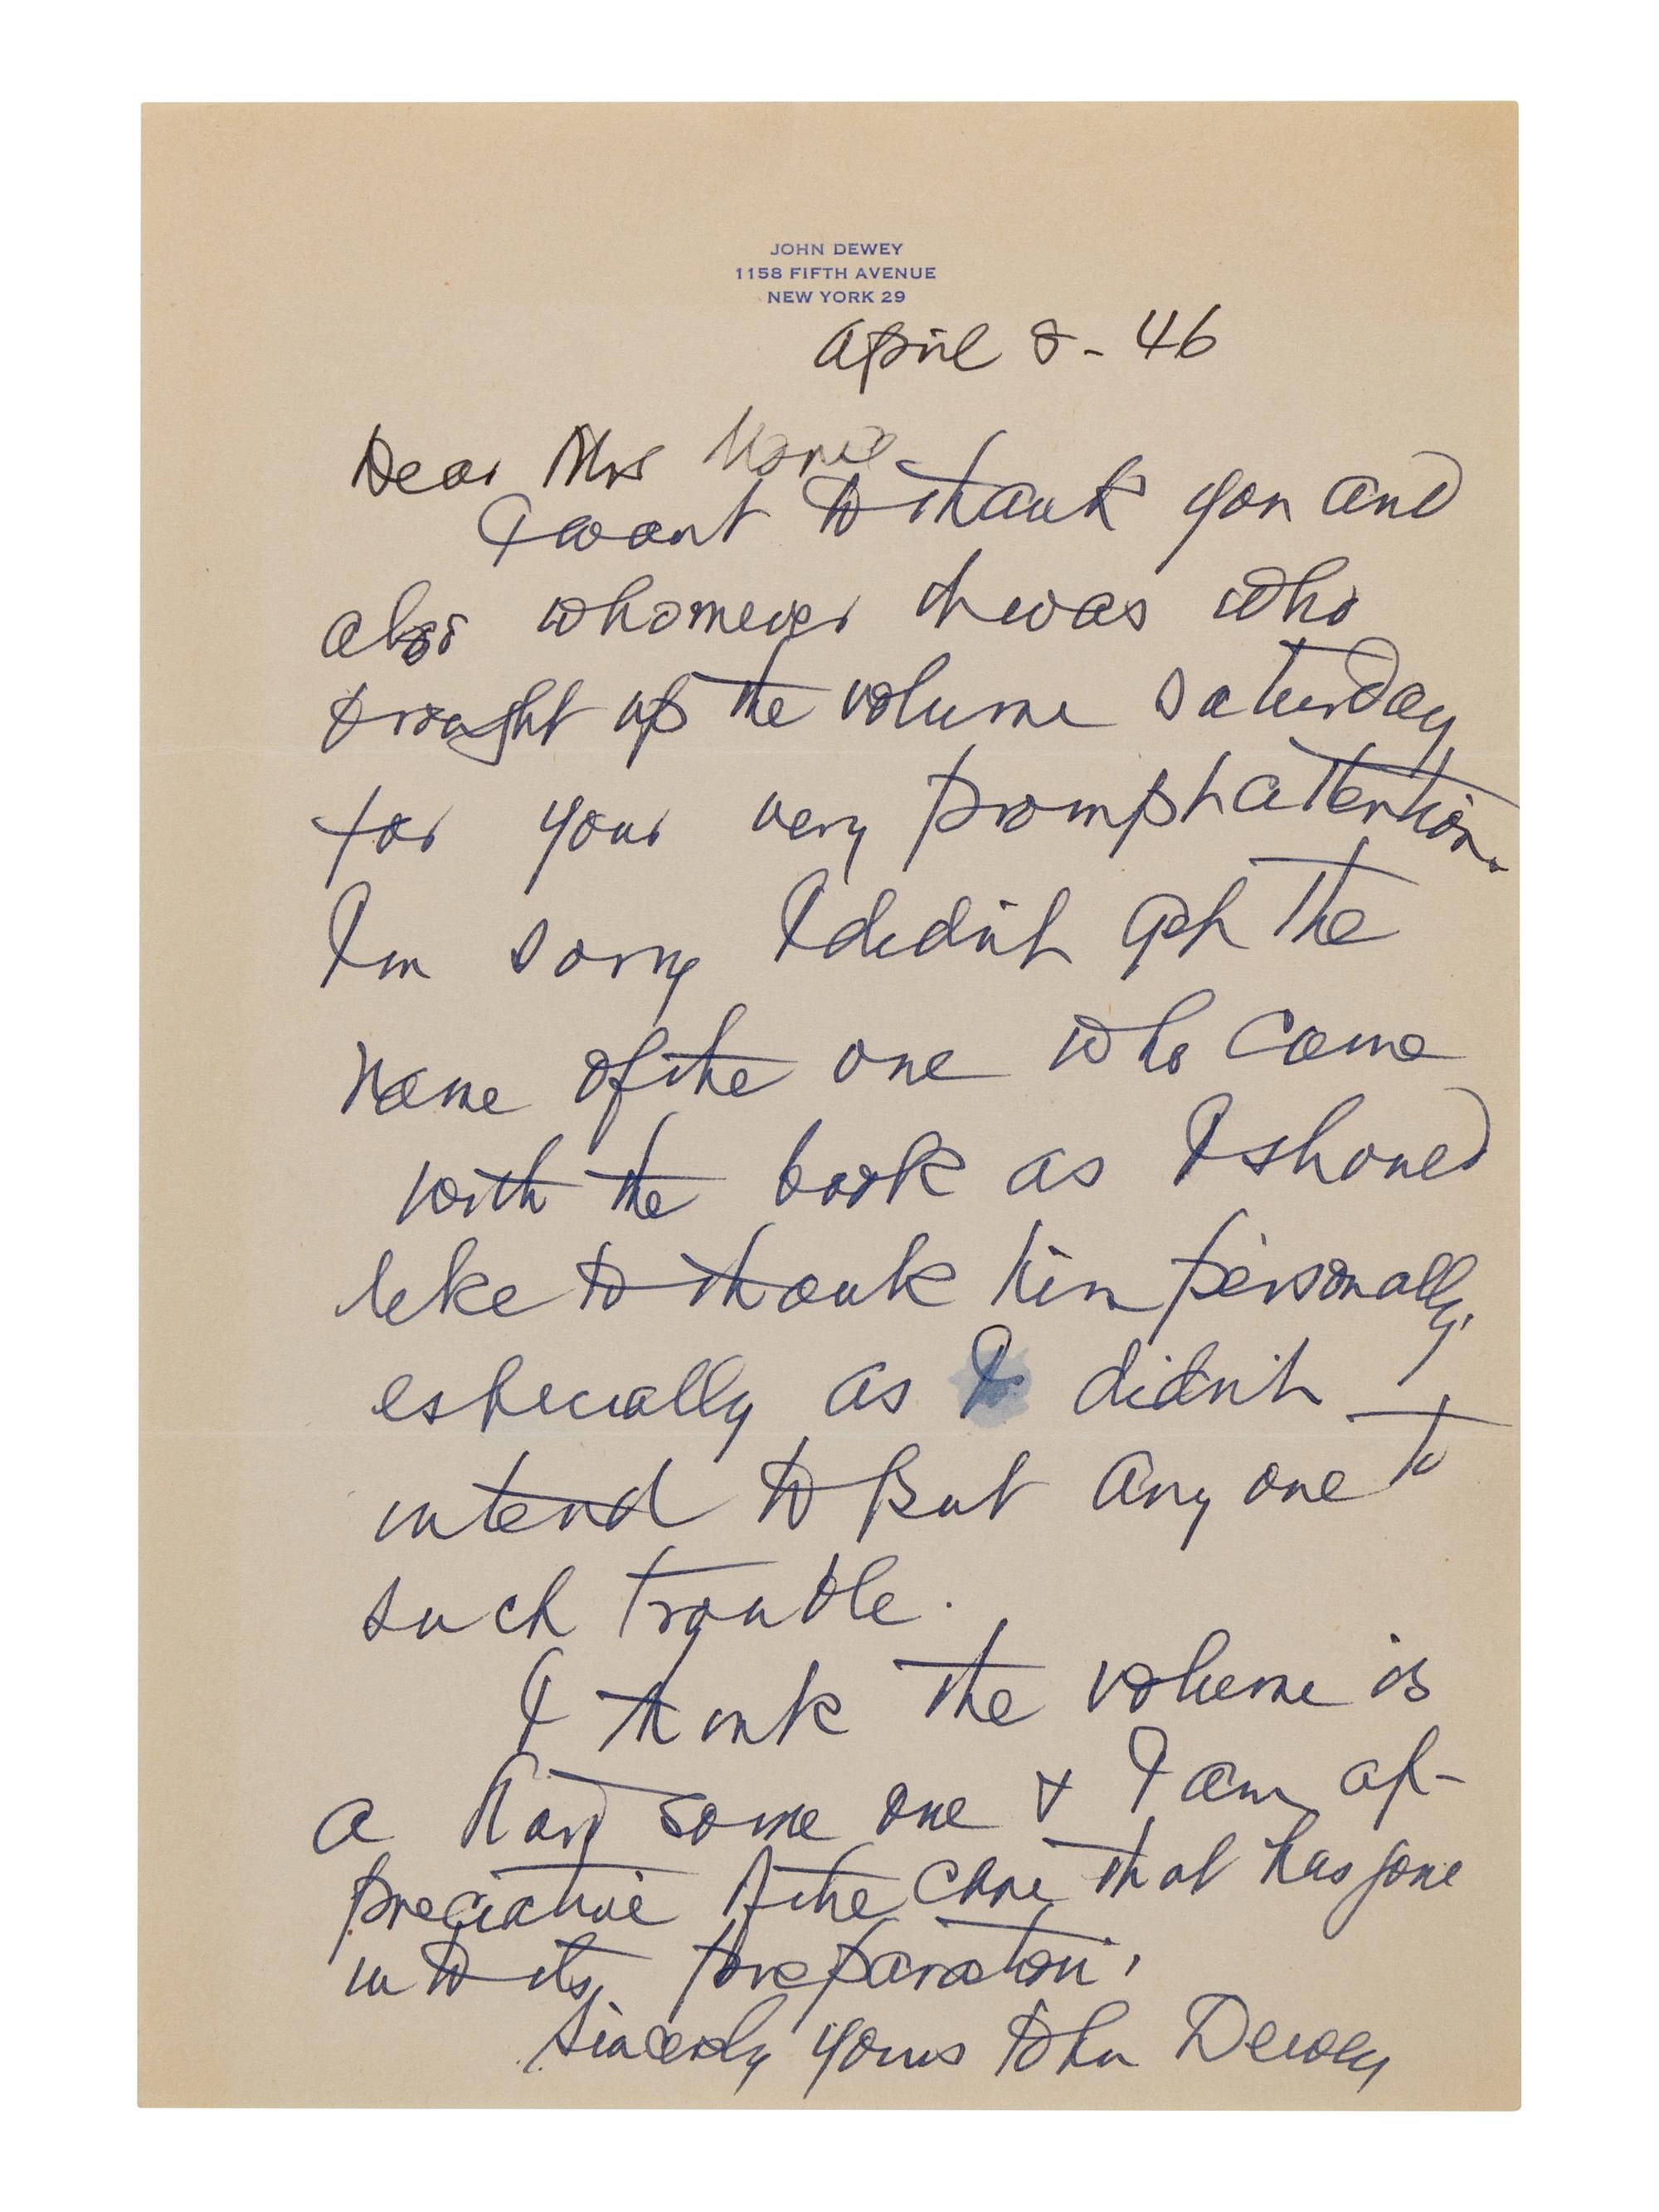 JOHN DEWEY
1158 FIFTH AVENUE
NEW YORK 29
April 8 - 46
Dear Mrs
I want to thank you and
also whomever it was who
brought up the volume Saturday
for your very prompt attention.
I'm sorry I didn't get the
name of the one who came
with the book as I should
like to thank him personally,
especially as I didn't
intend to put any one to
such trouble.
I think the volume is
a handsome one & I am ap-
preciative of the care that has gone
into its preparation.
Sincerely yours John Dewey